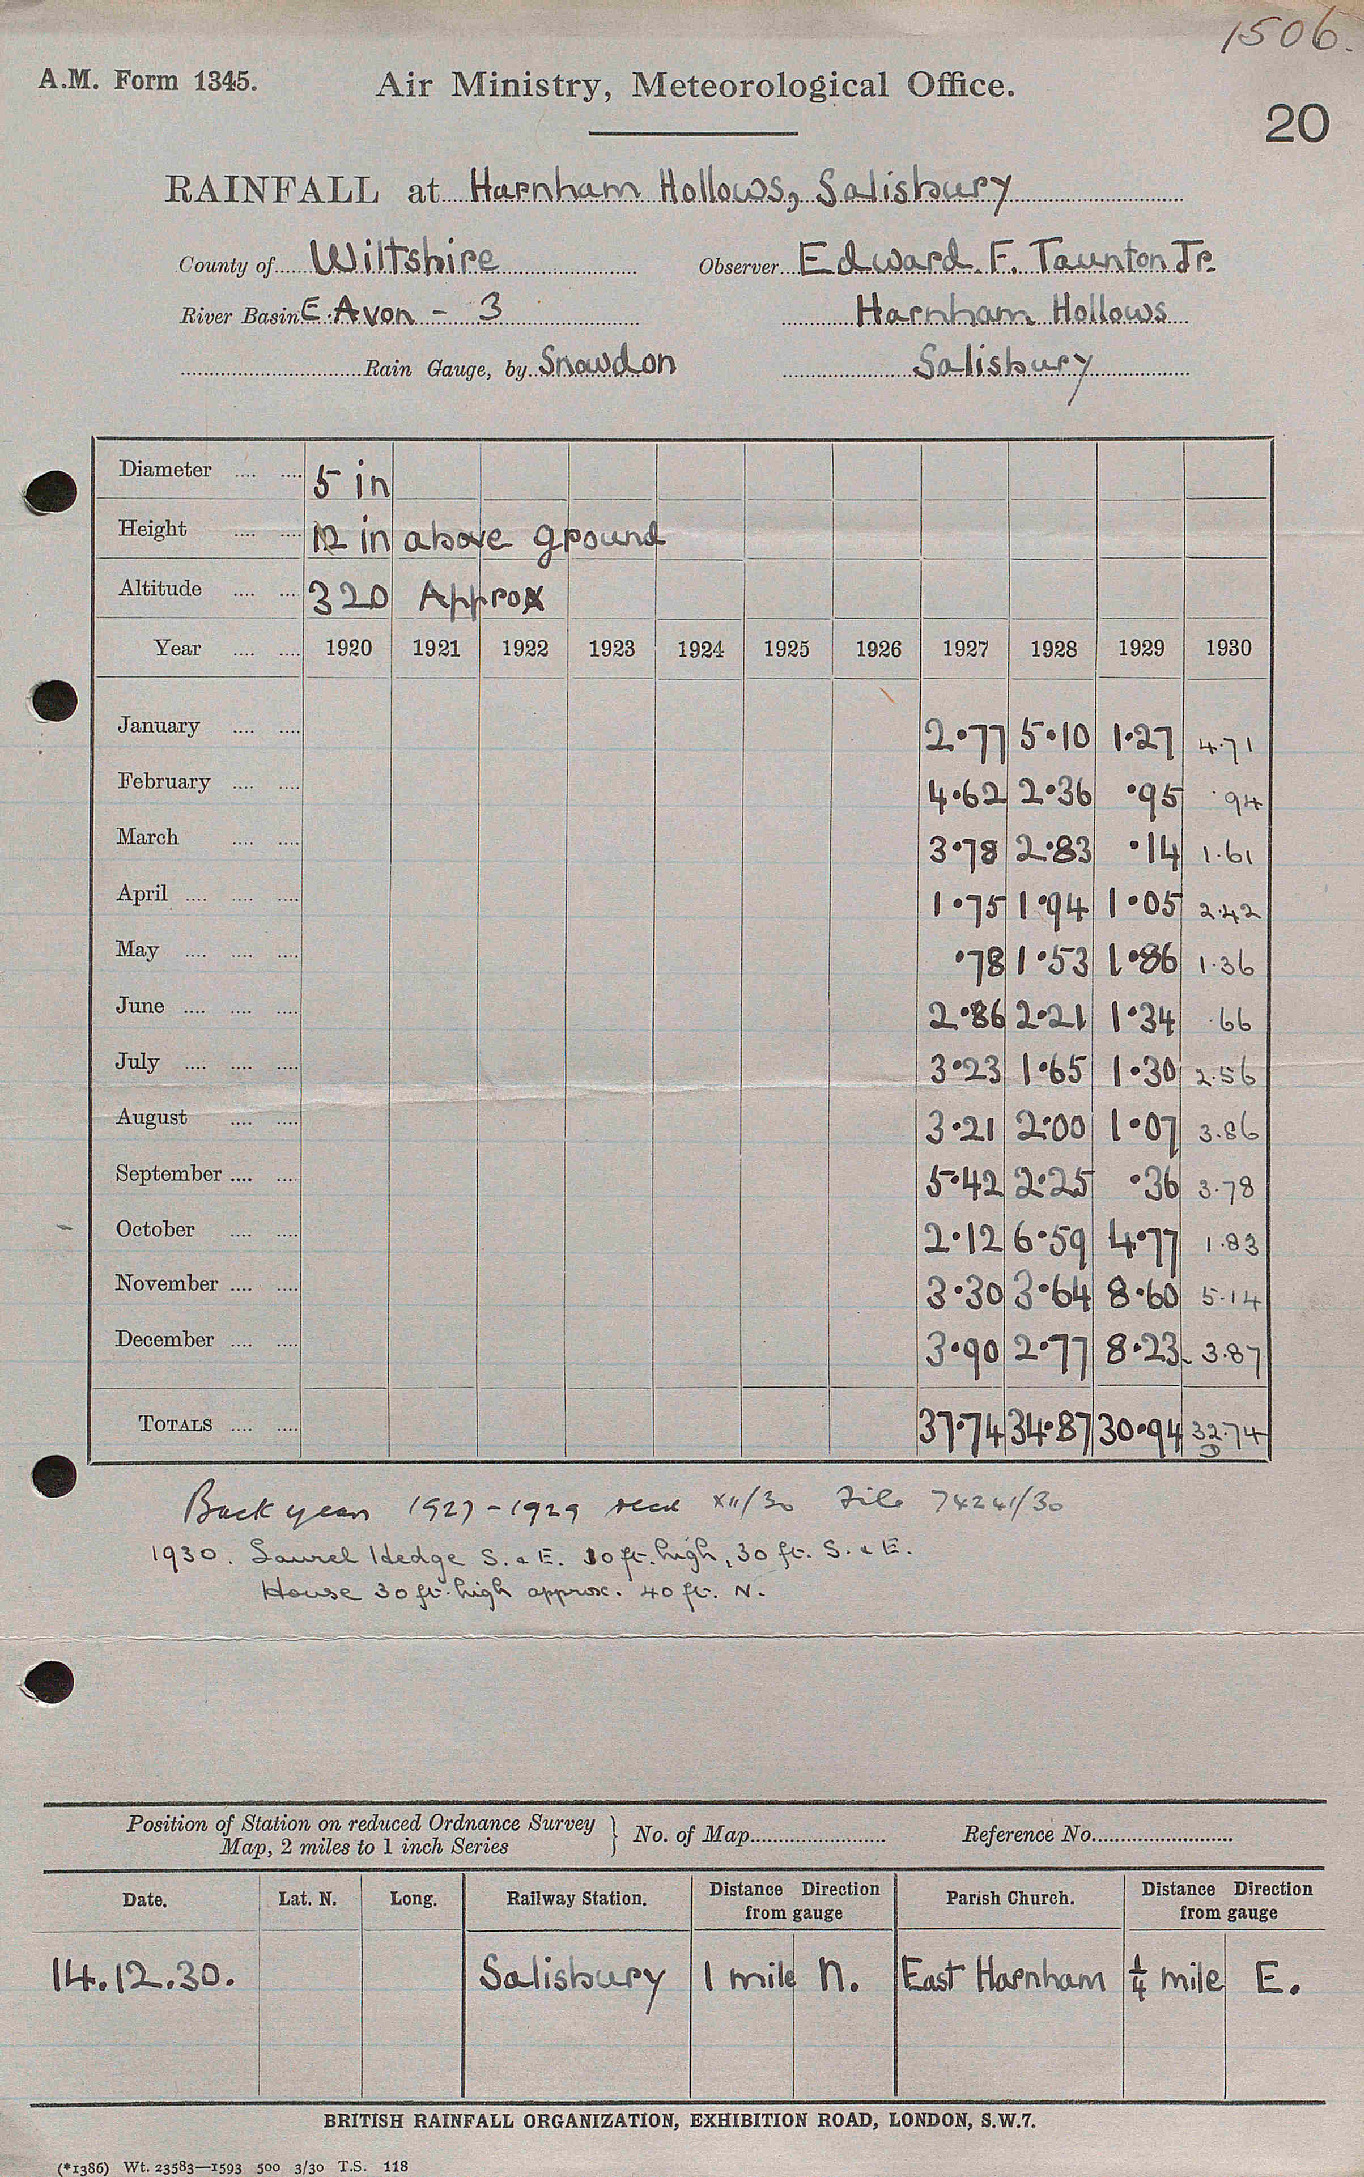 1506.
A.M. Form 1345. Air Ministry, Meteorological Office.
20
RAINFALL at Harnham Hollows, Salisbury
County of Wiltshire Observer Edward F. Taunton Jr.
River Basin E. Avon - 3 Harnham Hollows
Rain Gauge, by Snowdon Salisbury
Diameter 5 in
Height 12 in above ground
Altitude 320 Approx
Year 1920 1921 1922 1923 1924 1925 1926 1927 1928 1929 1930
January 2.77 5.10 1.27 4.71
February 4.62 2.36 .95 .94
March 3.78 2.83 .14 1.61
April 1.75 1.94 1.05 2.42
May .78 1.53 1.86 1.36
June 2.86 2.21 1.34 .66
July 3.23 1.65 1.30 2.56
August 3.21 2.00 1.07 3.86
September 5.42 2.25 .36 3.78
October 2.12 6.59 4.77 1.83
November 3.30 3.64 8.60 5.14
December 3.90 2.77 8.23 3.87
TOTALS 37.74 34.87 30.94 32.74
Back years 1927-1929 recd XII/30 File 74241/30
1930. Laurel Hedge S. & E. 10 ft. high, 30 ft. S. & E.
House 30 ft. high approx. 40 ft. N.
Position of Station on reduced Ordnance Survey
Map, 2 miles to 1 inch Series } No. of Map Reference No.
Date. Lat. N. Long. Railway Station. Distance Direction from gauge Parish Church. Distance Direction from gauge
14.12.30. Salisbury 1 mile N. East Harnham ¼ mile E.
BRITISH RAINFALL ORGANIZATION, EXHIBITION ROAD, LONDON, S.W.7.
(*1386) Wt. 23583—1593 500 3/30 T.S. 118